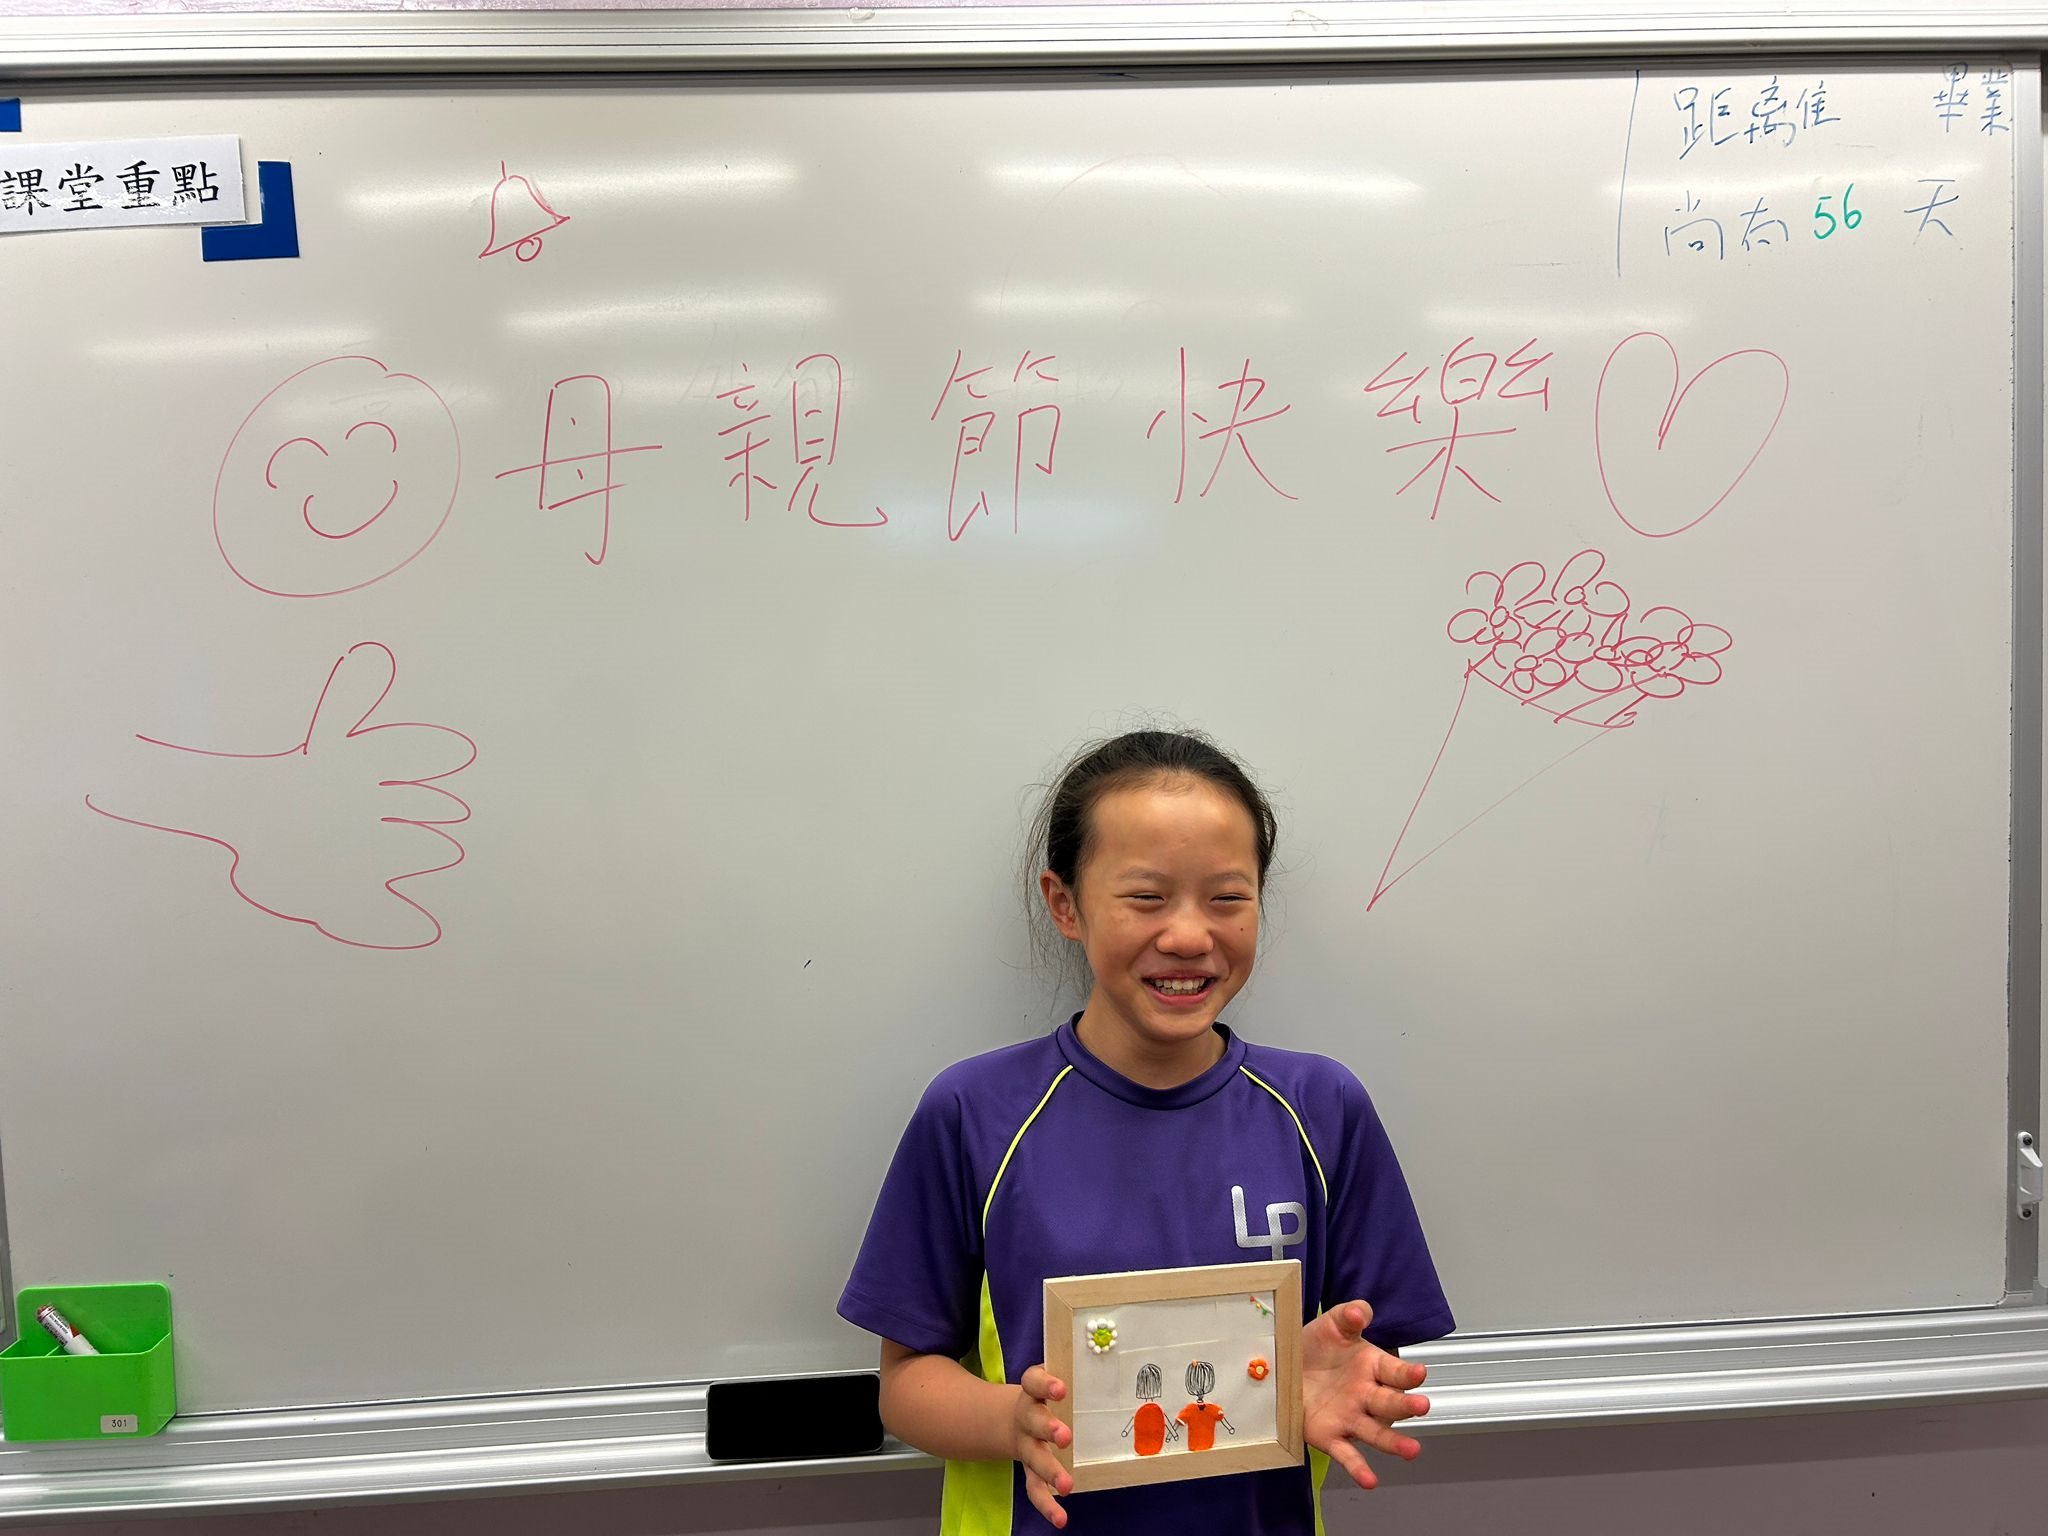 課堂重點
距離 畢業
尚有 56 天
母親節快樂
LP
301